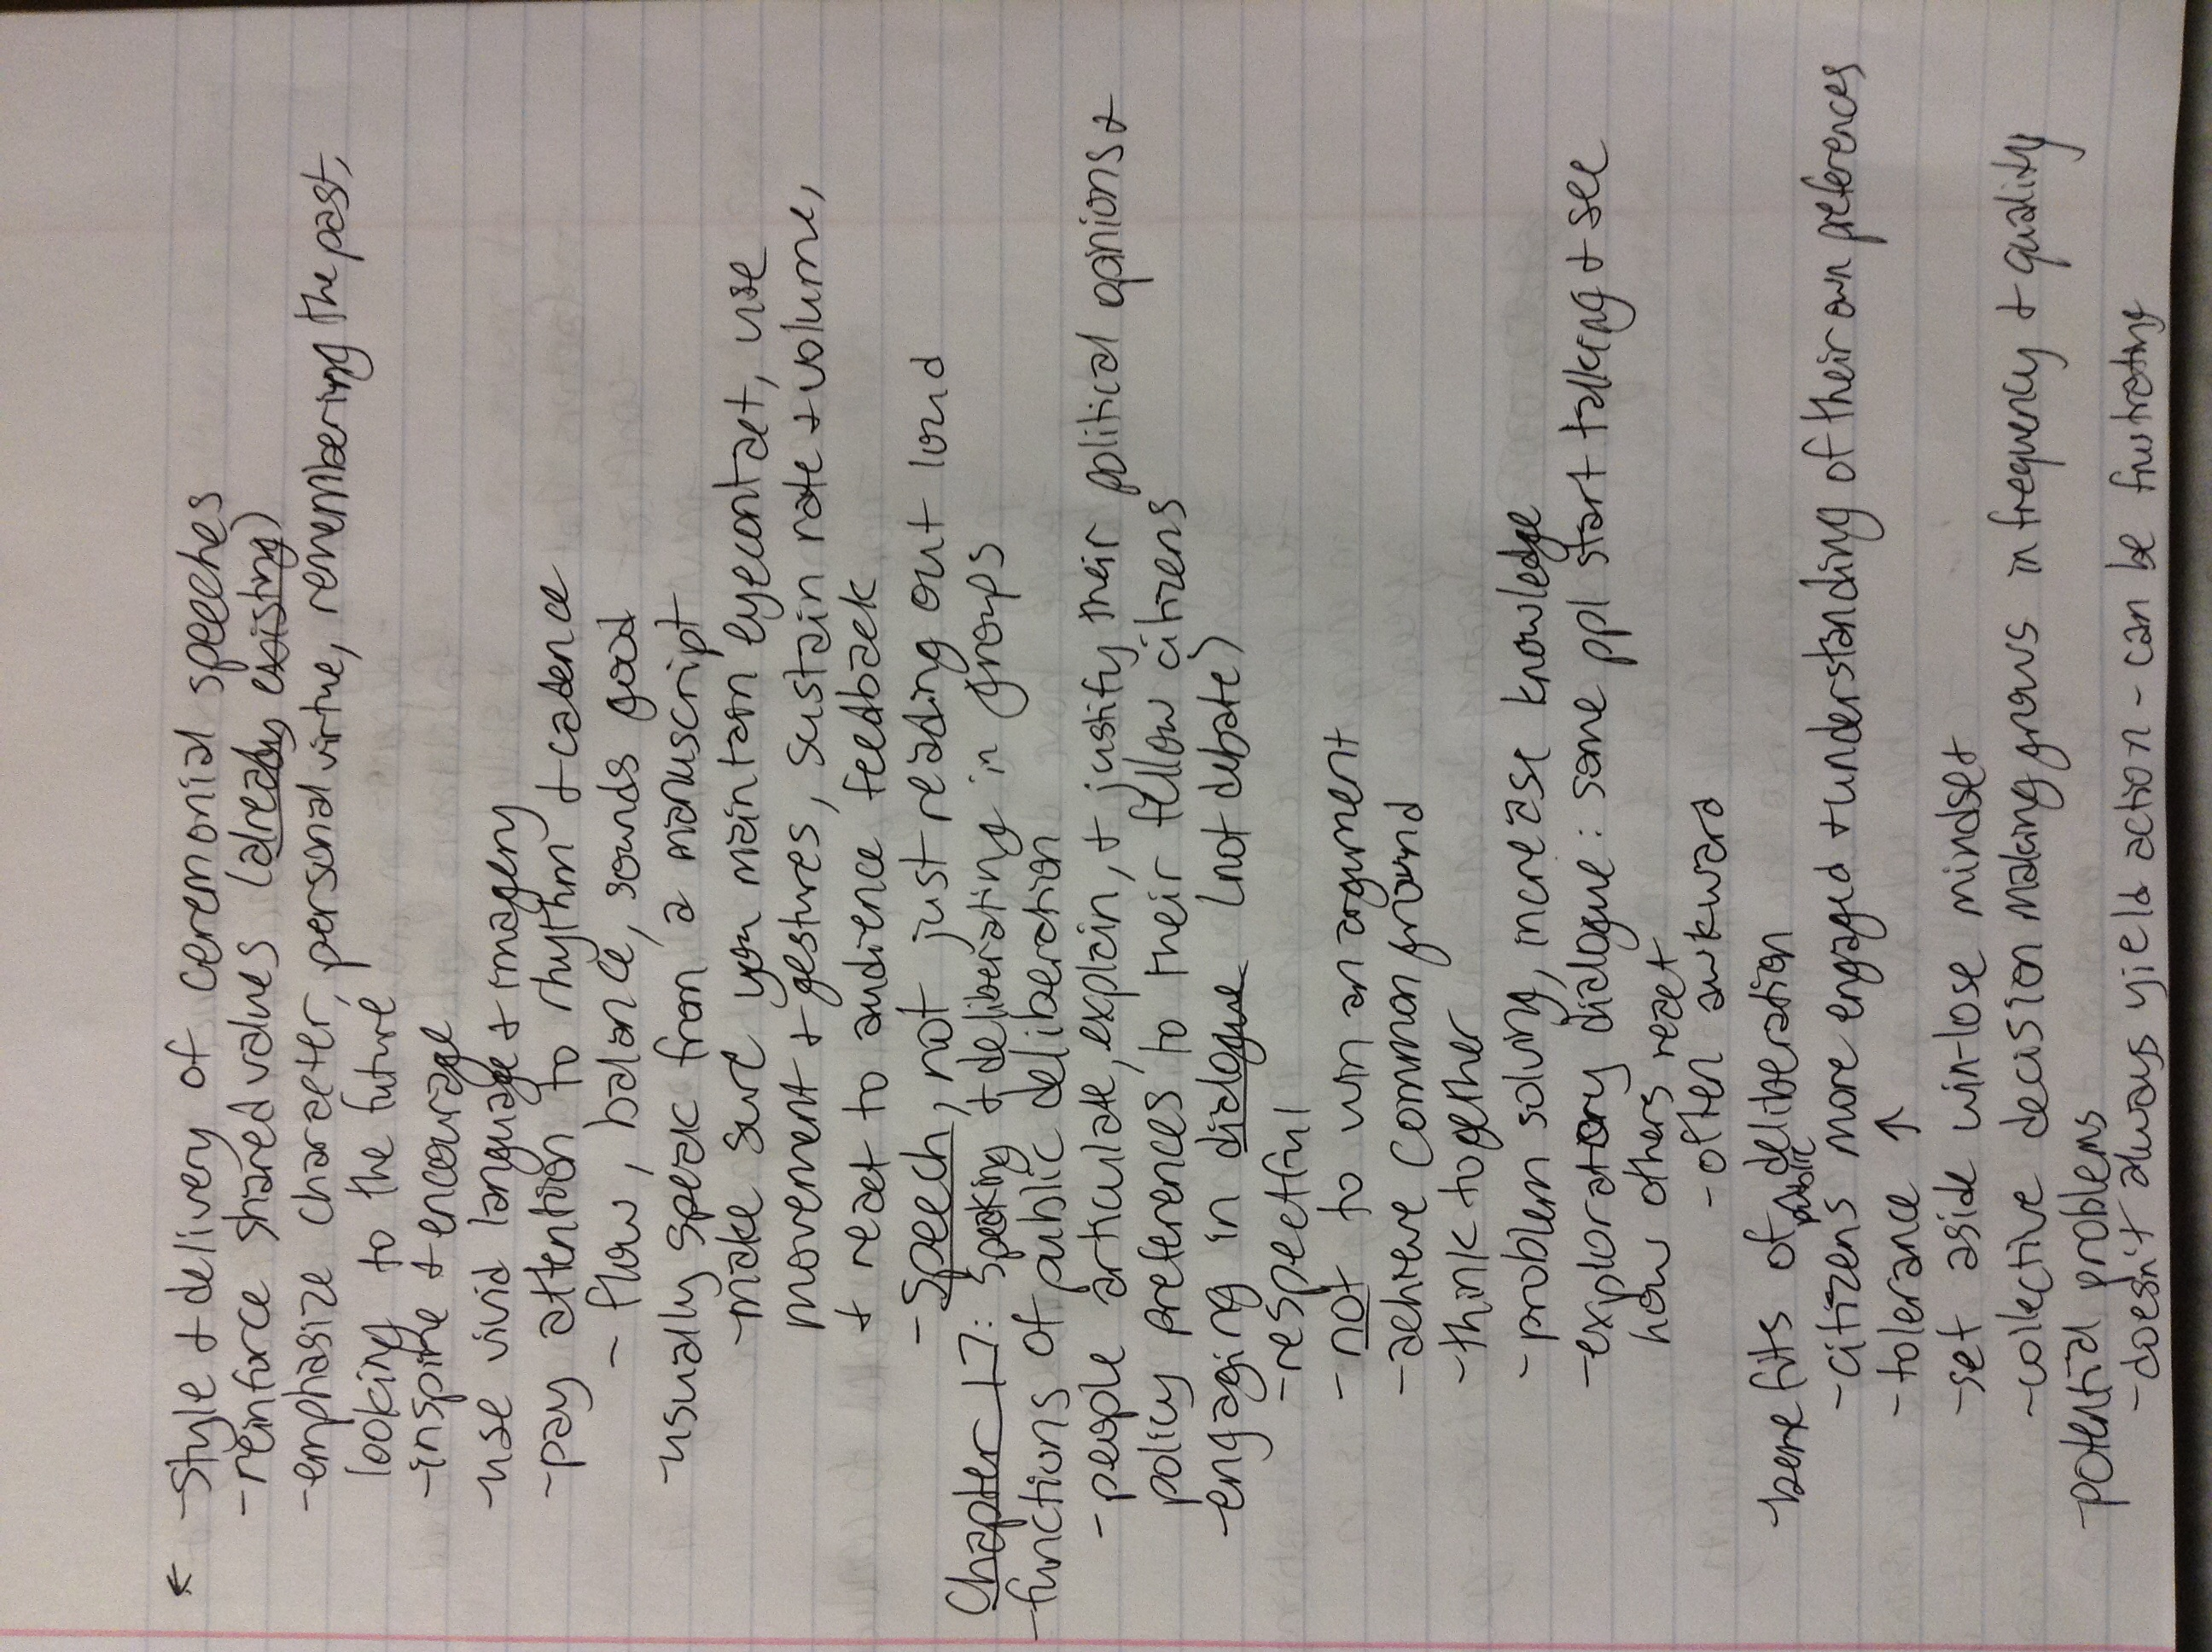 ← -Style + delivery of ceremonial speeches
-reinforce shared values (already existing)
-emphasize character, personal virtue, remembering the past,
looking to the future
-inspire + encourage
-use vivid language + imagery
-pay attention to rhythm + cadence
- flow, balance, sounds good
-usually speak from a manuscript
-make sure you maintain eyecontact, use
movement + gestures, sustain rate + volume,
+ react to audience feedback
-Speech, not just reading out loud
Chapter 17: Speaking + deliberating in groups
-functions of public deliberation
-people articulate, explain, + justify their political opinions +
policy preferences to their fellow citizens
-engaging in dialogue (not debate)
-respectful
-not to win an argument
-achieve common ground
-think together
-problem solving, increase knowledge
-exploratory dialogue: some ppl start talking + see
how others react
-often awkward
-benefits of public deliberation
-citizens more engaged + understanding of their own preferences
-tolerance ↑
-set aside win-lose mindset
-collective decision making grows in frequency + quality
-potential problems
-doesn't always yield action - can be frustrating